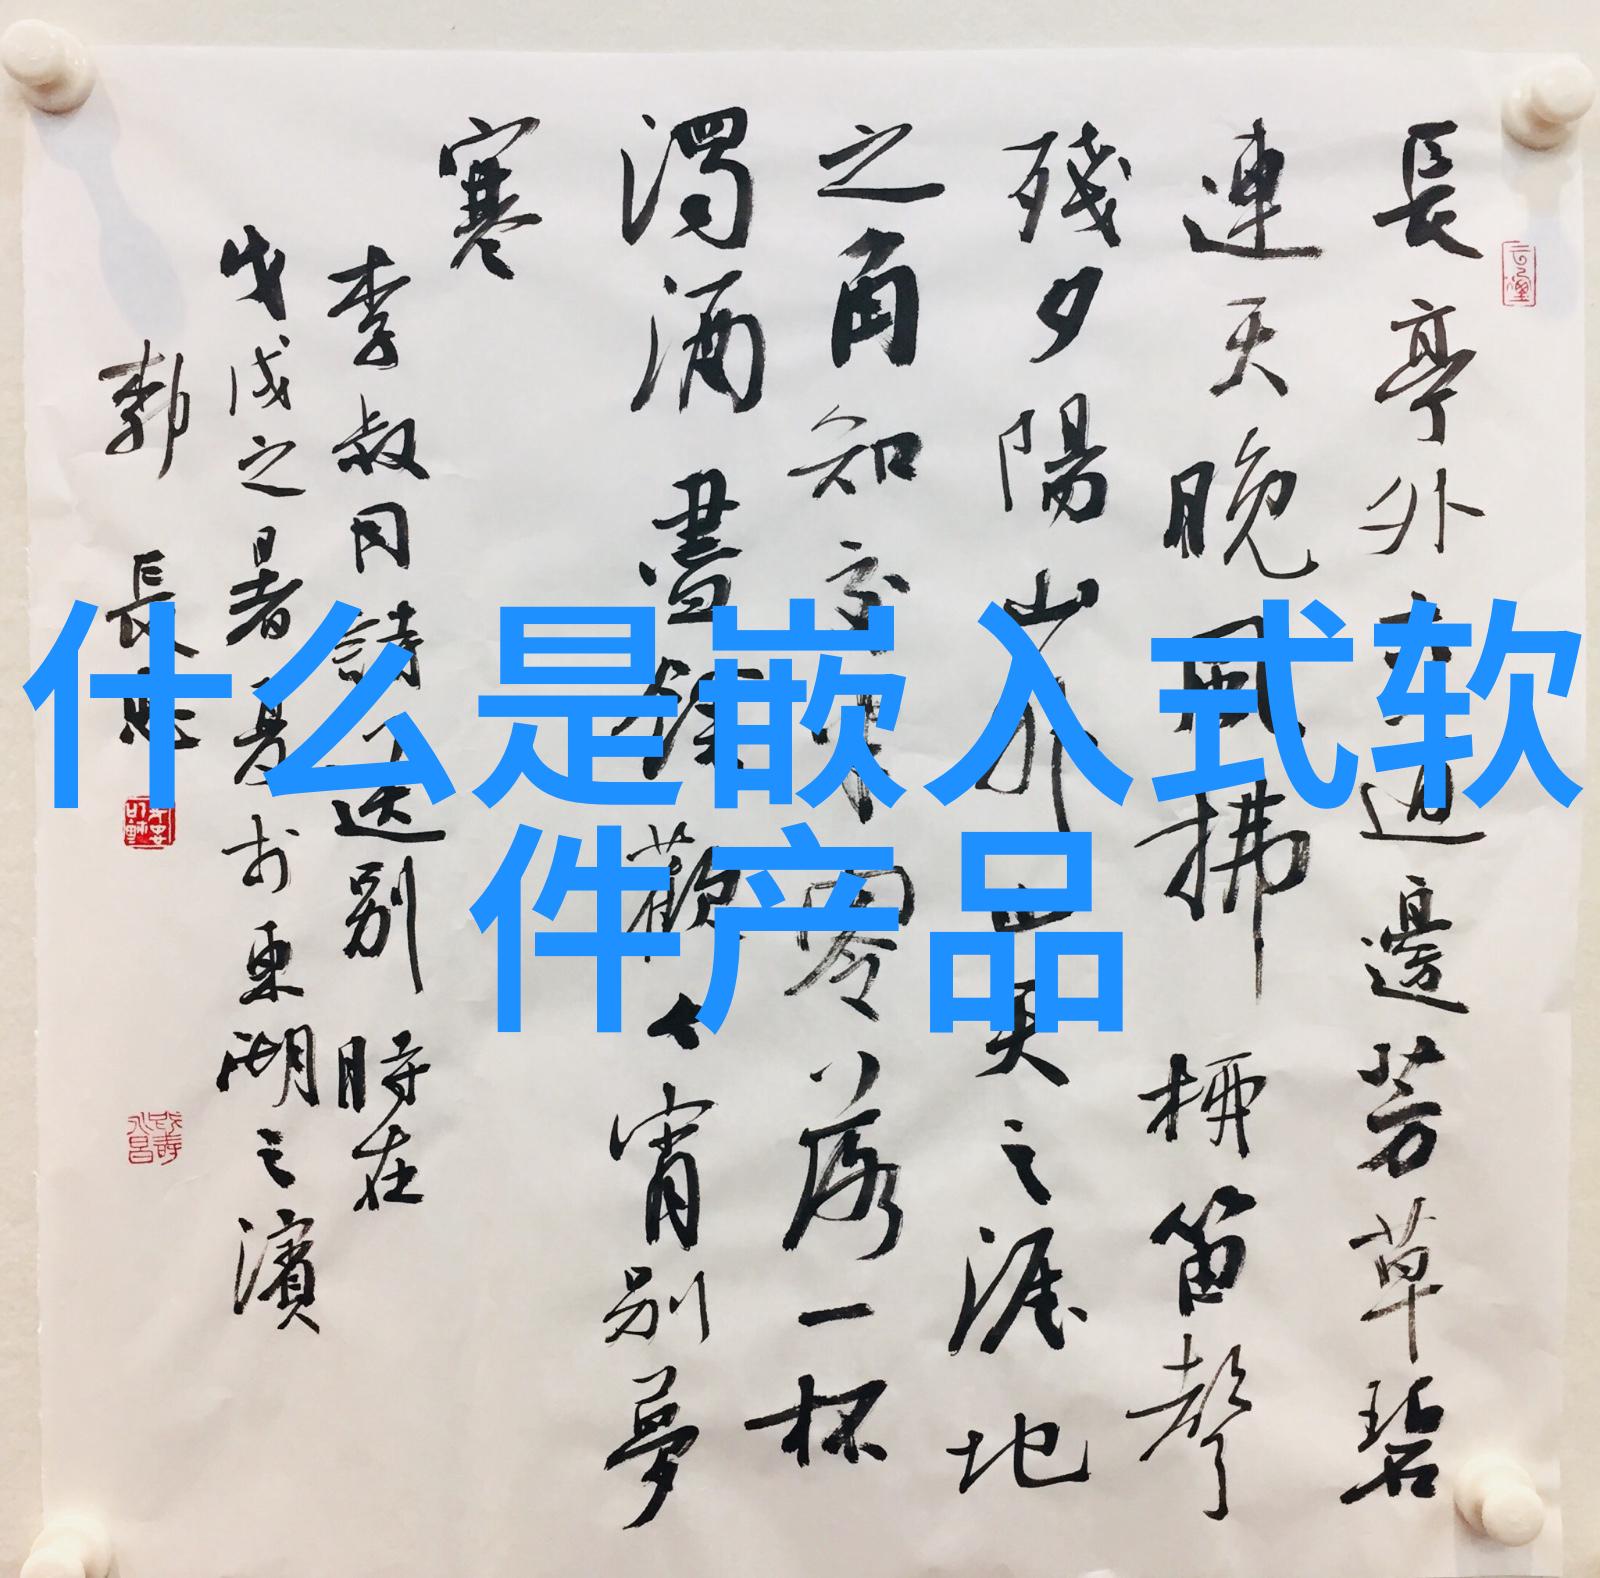 什么是嵌入式软
件产品
長亭外古道邊芳草碧
連天晚風拂柳笛聲
殘夕陽山外山天之涯地
之角知交半零落一杯
濁酒盡餘歡今宵別夢
寒
李叔同詩送別 時在
戊戌之暑月於東湖之濱